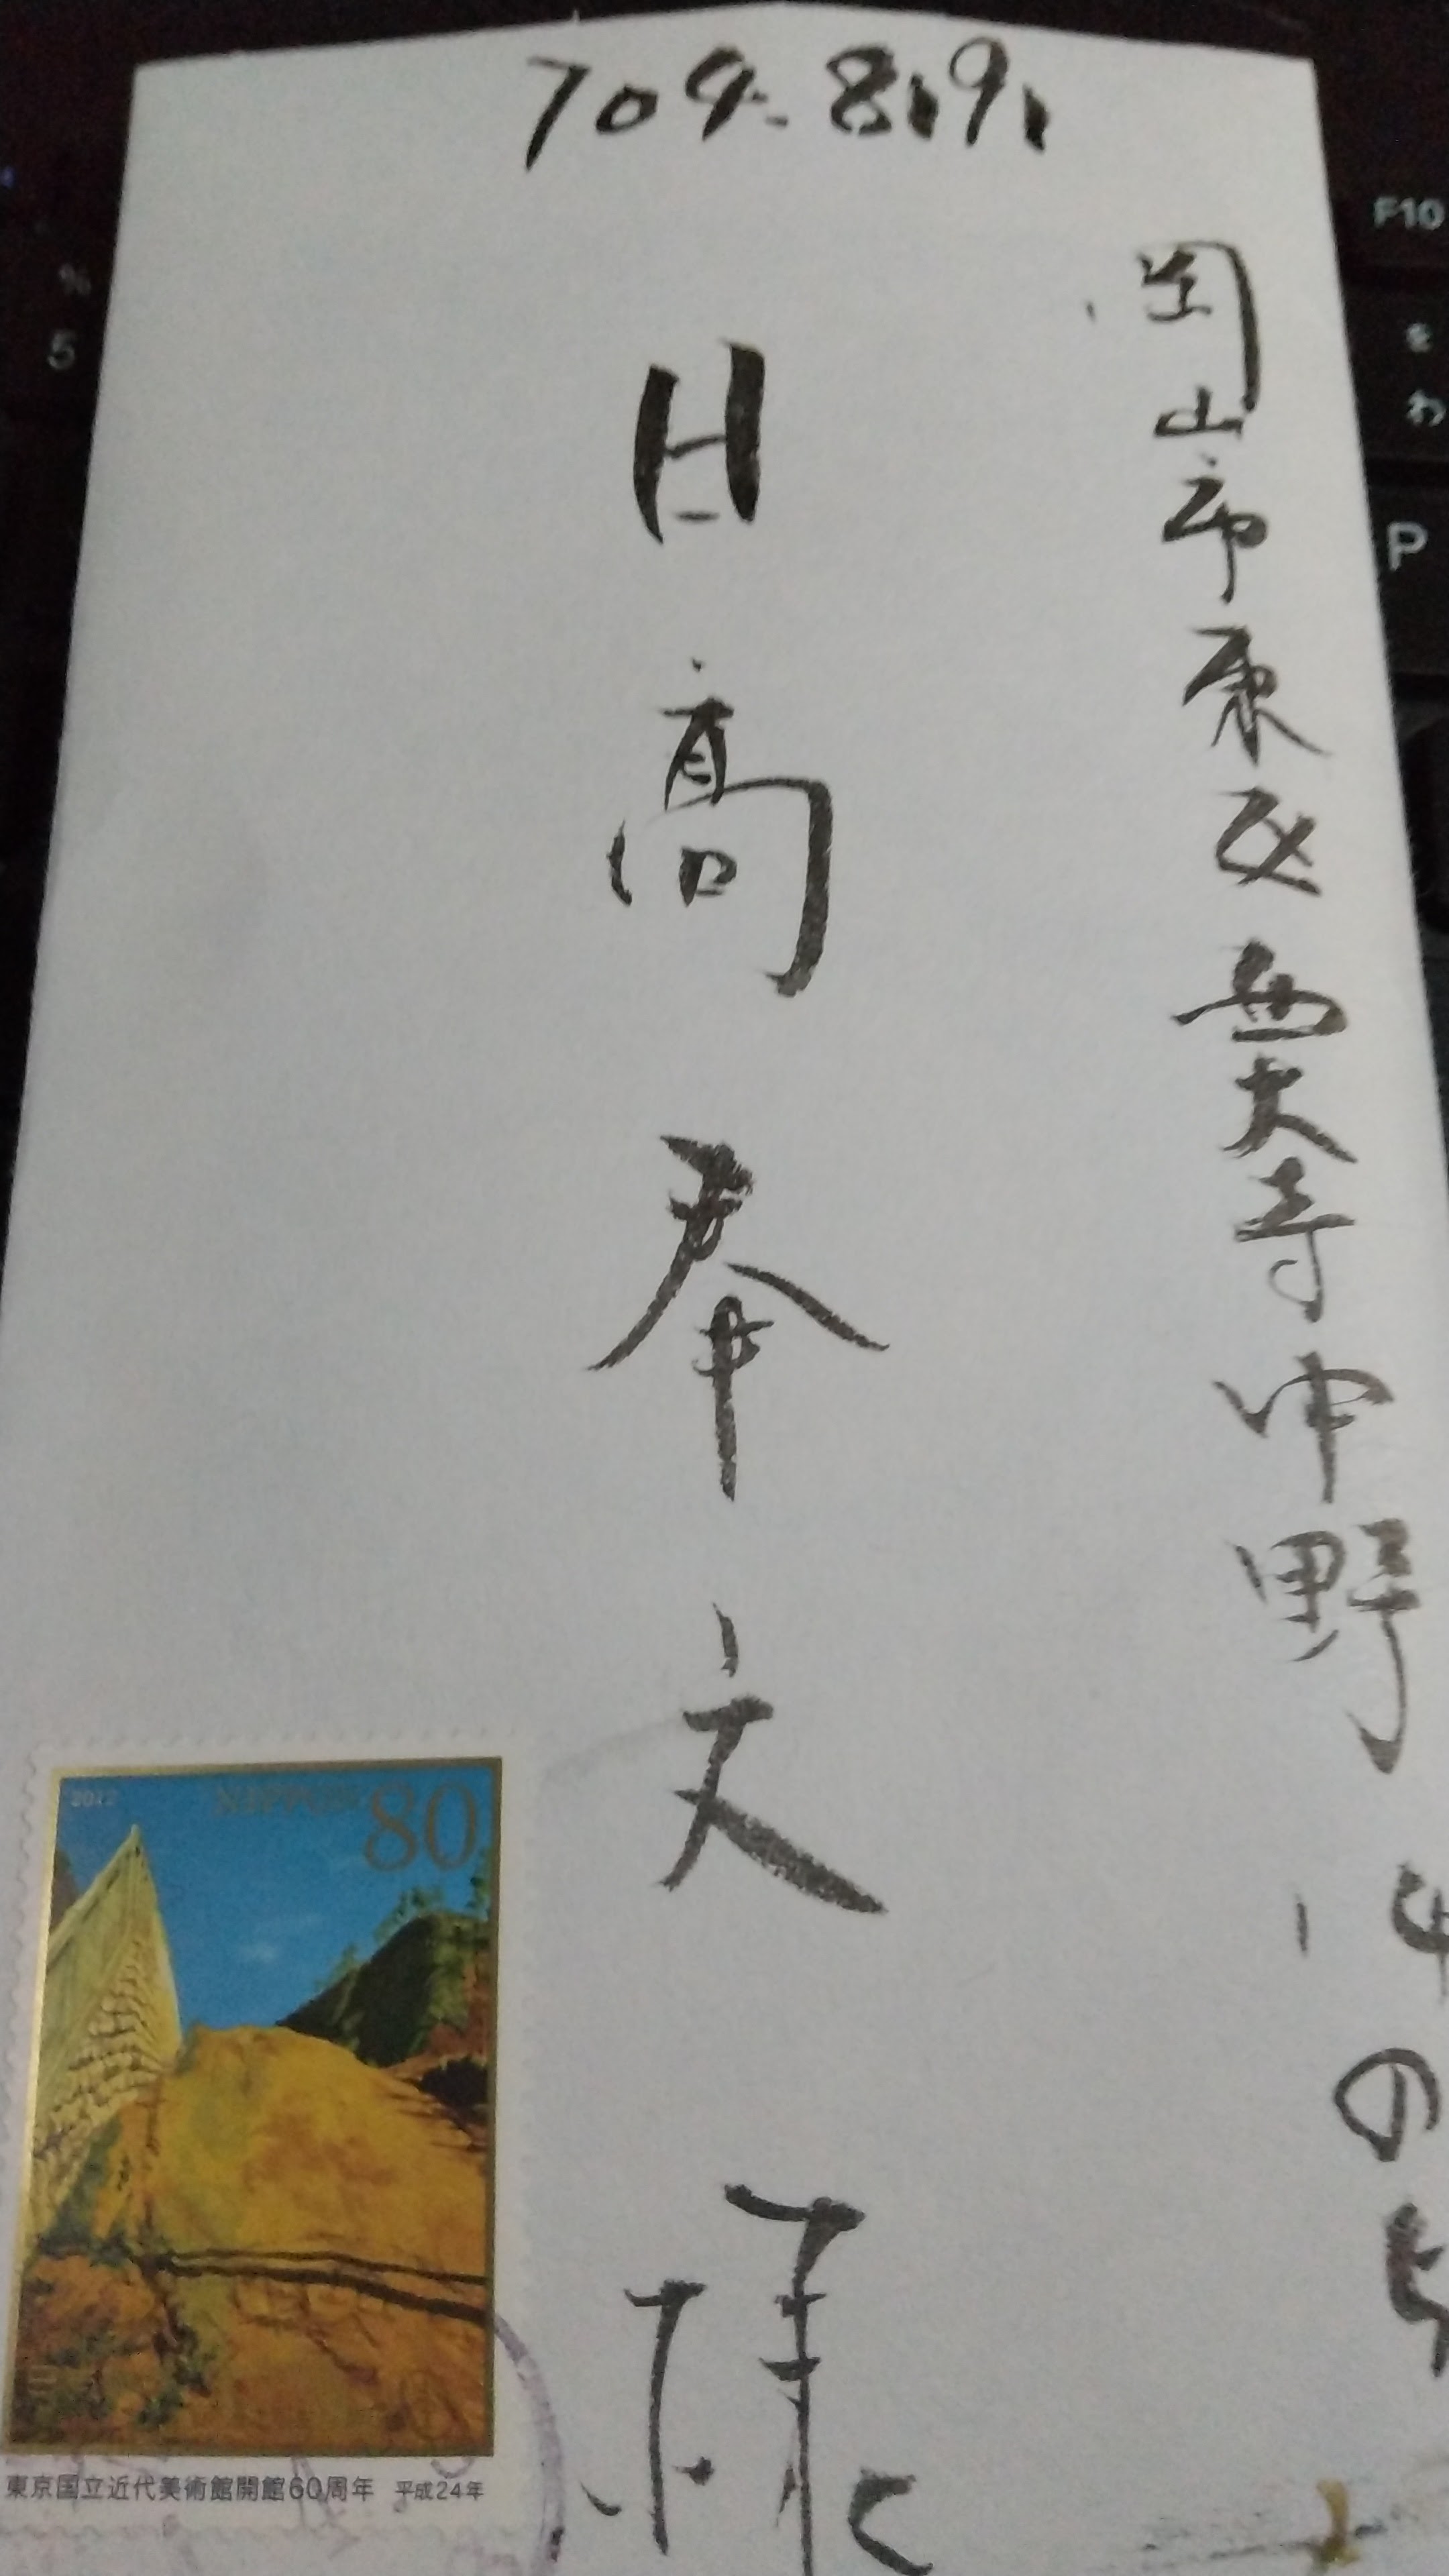 704-8191
岡山市東区西大寺中野
14の5
日高奉文
様
2012 NIPPON 80
東京国立近代美術館開館60周年 平成24年
F10
%
5
を
わ
P